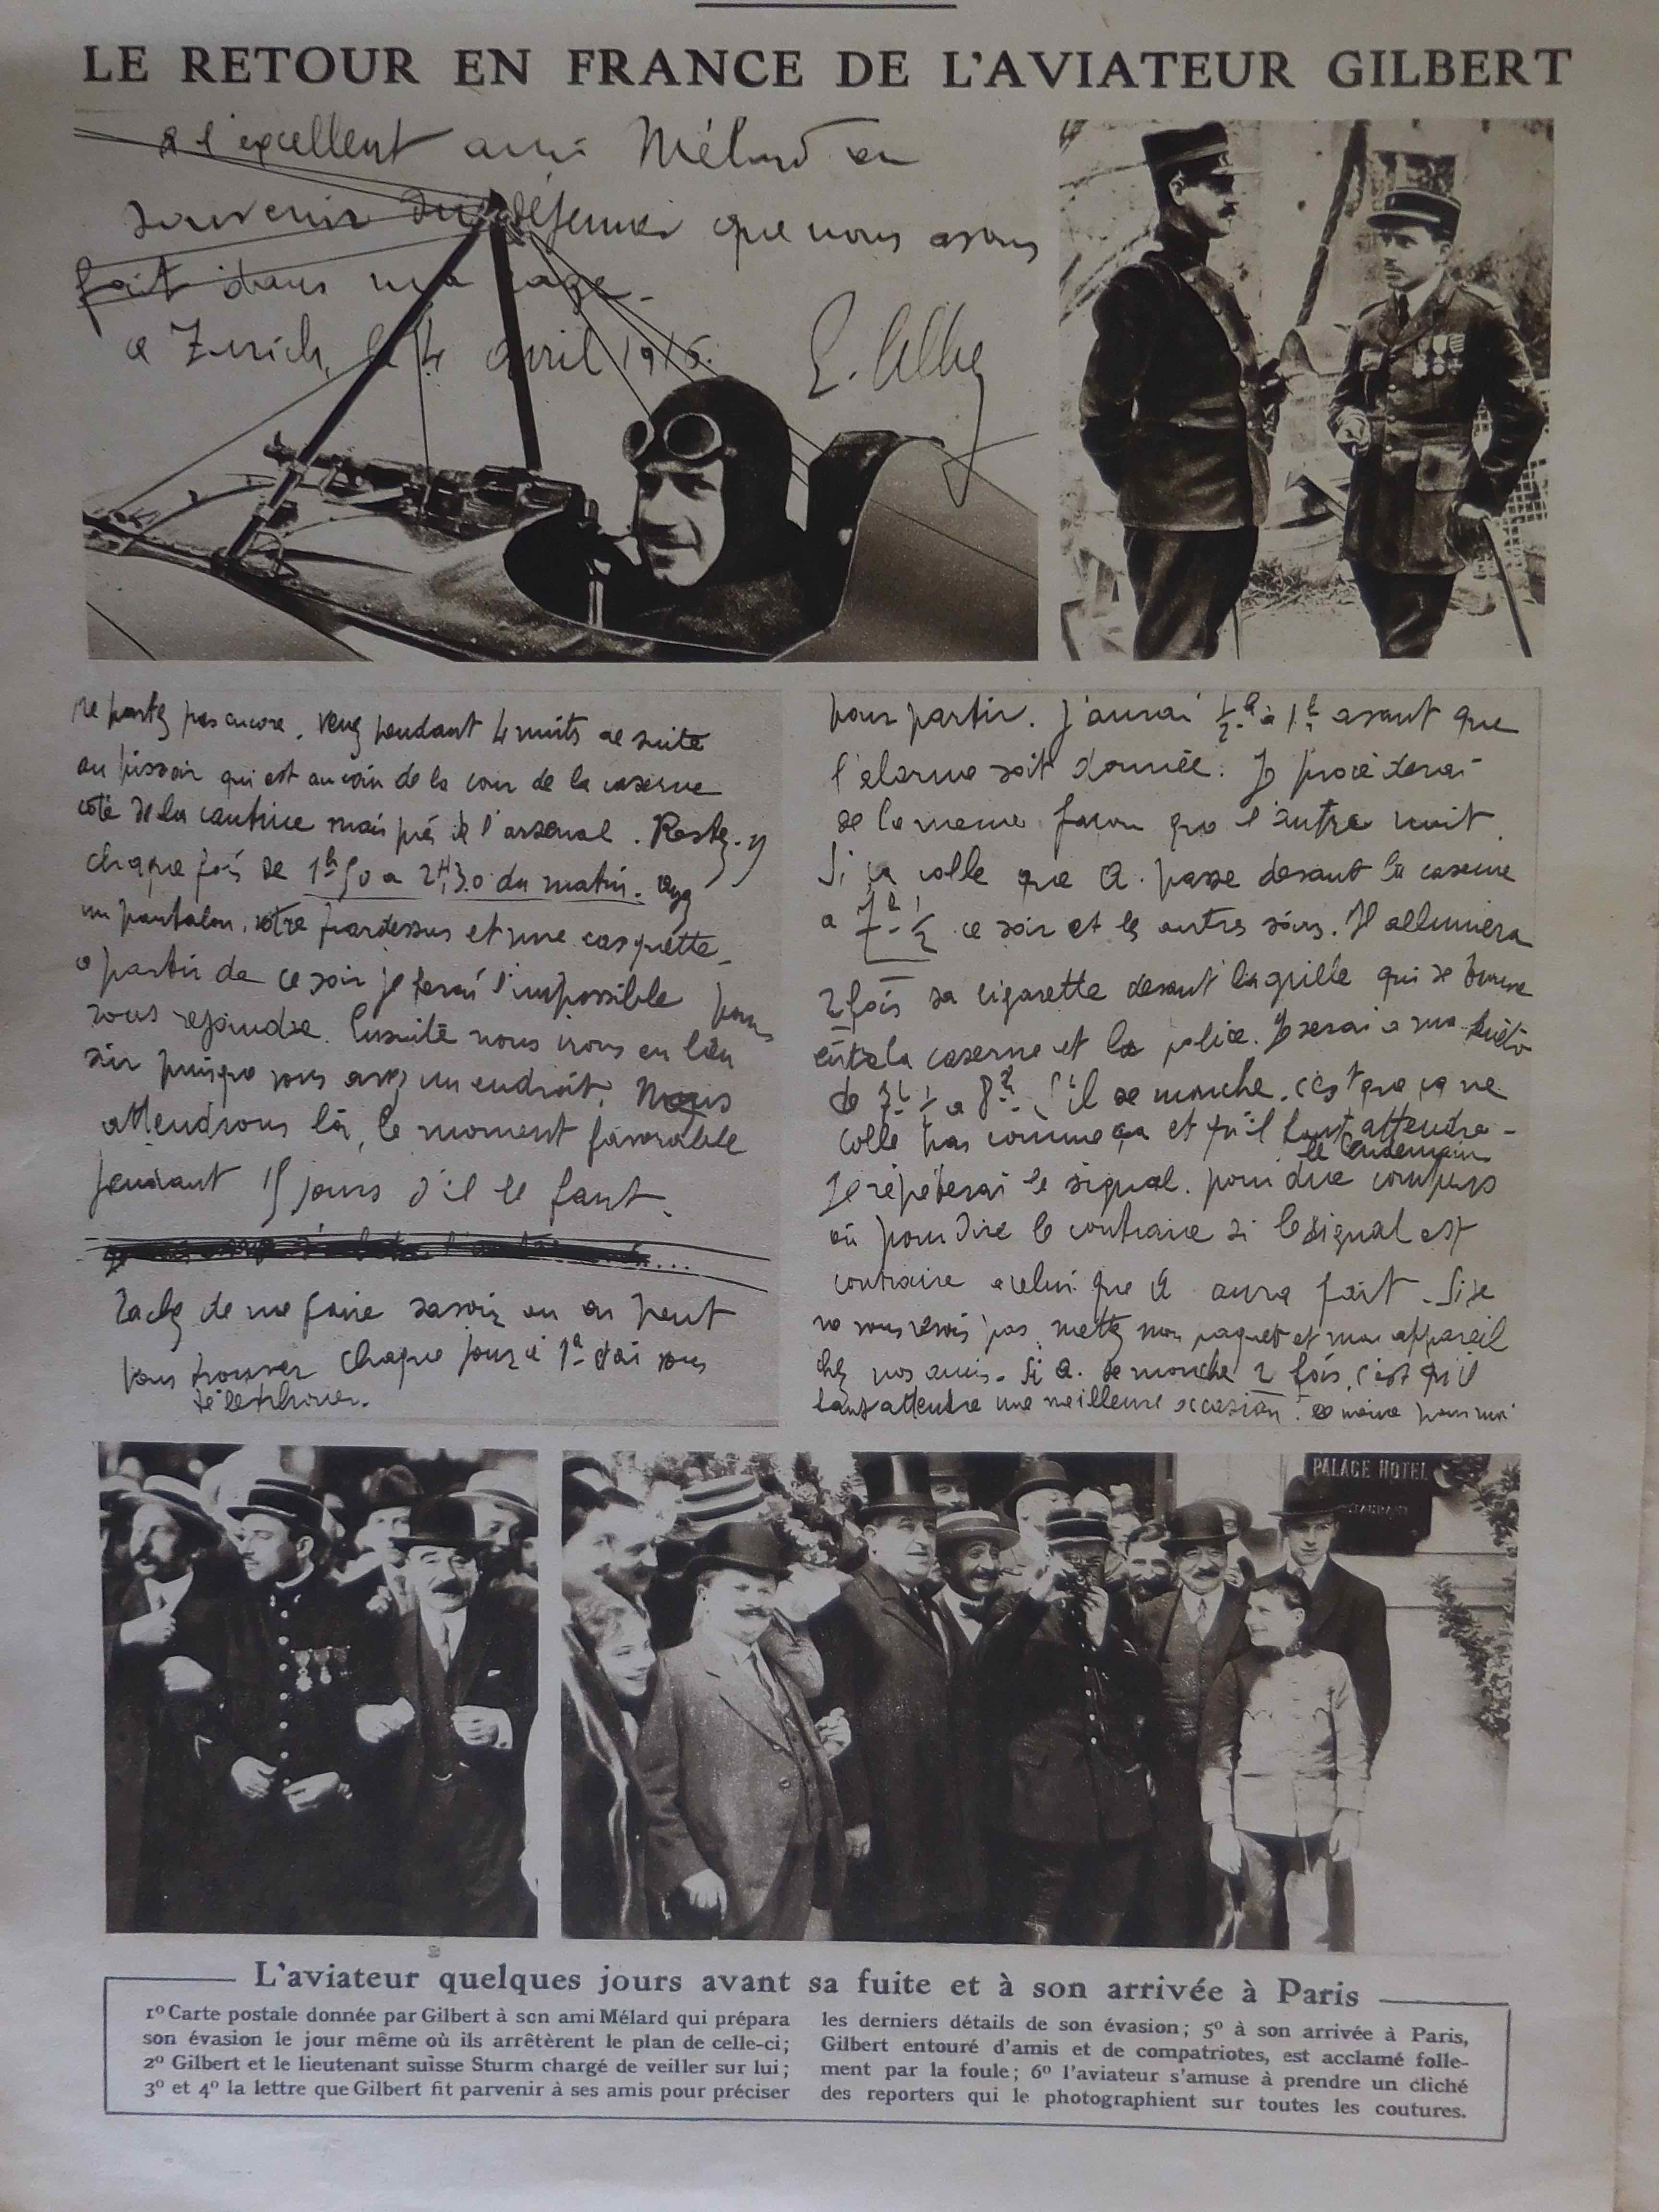 LE RETOUR EN FRANCE DE L'AVIATEUR GILBERT
A l'excellent ami Mélard en
souvenir du déjeuner que nous avons
fait dans ma cage.
a Zurich, le 4 avril 1916.
ne partez pas encore. Venez pendant 4 nuits de suite
au pissoir qui est au coin de la cour de la caserne
coté de la cantine mais près de l'arsenal. Restez-y
chaque fois de 1h50 a 2H30 du matin. ayez
un pantalon, votre pardessus et une casquette.
a partir de ce soir je ferai l'impossible pour
vous rejoindre. Ensuite nous irons en lieu
sûr puisque vous avez un endroit. Nous
attendrons là, le moment favorable
pendant 15 jours s'il le faut.
Tachez de me faire savoir ou on peut
vous trouver chaque jour à 1h
téléphoner.
pour partir. J'aurai 1/2h à 1h avant que
l'alarme soit donnée. Je procéderai
de la meme façon que l'autre nuit.
Si ça colle que A. passe devant la caserne
a 7h 1/2 ce soir et les autres soirs. Il allumera
2 fois sa cigarette devant la grille qui se trouve
entre la caserne et la police. Je serai a ma
de 7h 1/2 a 8h. S'il se mouche, c'est que ça ne
colle pas comme ça et qu'il faut attendre
le lendemain
Je répéterai le signal. pour dire compris
ou pour dire le contraire si le signal est
contraire a celui que A aura fait. Si je
ne vous revois pas, mettez mon paquet et mon appareil
chez nos amis. Si A. se mouche 2 fois, c'est qu'il
faut attendre une meilleure occasion. de même pour moi
PALACE HOTEL
L'aviateur quelques jours avant sa fuite et à son arrivée à Paris
1º Carte postale donnée par Gilbert à son ami Mélard qui prépara
son évasion le jour même où ils arrêtèrent le plan de celle-ci;
2º Gilbert et le lieutenant suisse Sturm chargé de veiller sur lui;
3º et 4º la lettre que Gilbert fit parvenir à ses amis pour préciser
les derniers détails de son évasion; 5º à son arrivée à Paris,
Gilbert entouré d'amis et de compatriotes, est acclamé folle-
ment par la foule; 6º l'aviateur s'amuse à prendre un cliché
des reporters qui le photographient sur toutes les coutures.